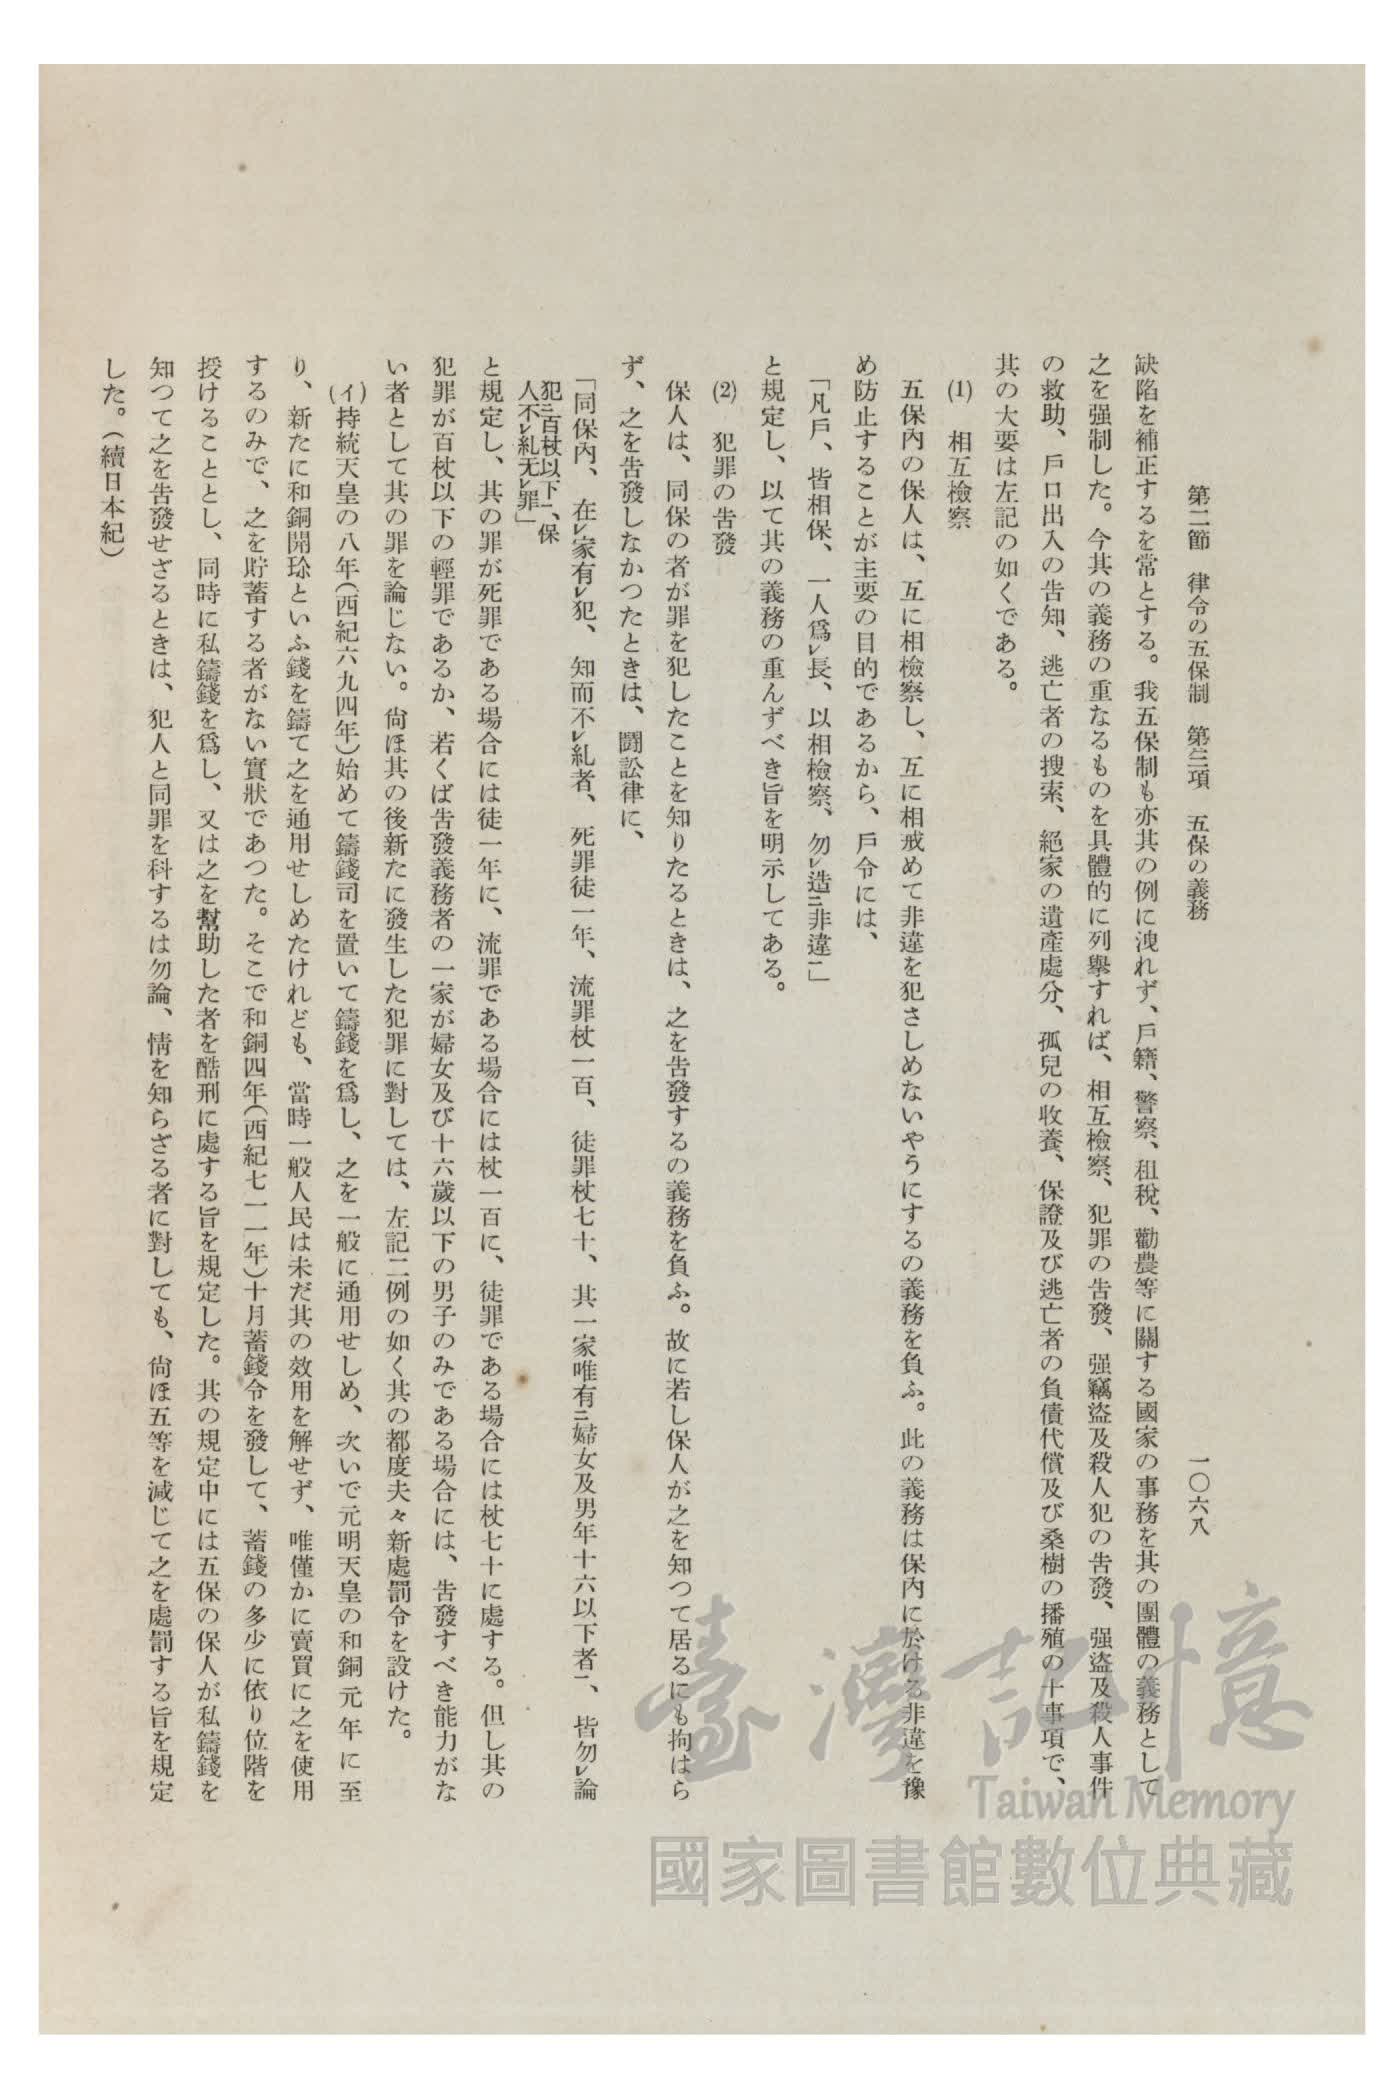 第二節　律令の五保制　第三項　五保の義務　一〇六八
缺陷を補正するを常とする。我五保制も亦其の例に洩れず、戶籍、警察、租稅、勸農等に關する國家の事務を其の團體の義務として
之を强制した。今其の義務の重なるものを具體的に列擧すれば、相互檢察、犯罪の吿發、强竊盜及殺人犯の吿發、强盜及殺人事件
の救助、戶口出入の吿知、逃亡者の搜索、絕家の遺產處分、孤兒の收養、保證及び逃亡者の負債代償及び桑樹の播殖の十事項で、
其の大要は左記の如くである。
(1)　相互檢察
五保內の保人は、互に相檢察し、互に相戒めて非違を犯さしめないやうにするの義務を負ふ。此の義務は保內に於ける非違を豫
め防止することが主要の目的であるから、戶令には、
「凡戶、皆相保、一人爲㆑長、以相檢察、勿㆑造㆓非違㆒」
と規定し、以て其の義務の重んずべき旨を明示してある。
(2)　犯罪の吿發
保人は、同保の者が罪を犯したことを知りたるときは、之を吿發するの義務を負ふ。故に若し保人が之を知つて居るにも拘はら
ず、之を吿發しなかつたときは、鬪訟律に、
「同保內、在㆑家有㆑犯、知而不㆑糺者、死罪徒一年、流罪杖一百、徒罪杖七十、其一家唯有㆓婦女及男年十六以下者㆒、皆勿㆑論
犯㆓百杖以下㆒、保
人不㆑糺无㆑罪」
と規定し、其の罪が死罪である場合には徒一年に、流罪である場合には杖一百に、徒罪である場合には杖七十に處する。但し其の
犯罪が百杖以下の輕罪であるか、若くば吿發義務者の一家が婦女及び十六歲以下の男子のみである場合には、吿發すべき能力がな
い者として其の罪を論じない。尙ほ其の後新たに發生した犯罪に對しては、左記二例の如く其の都度夫々新處罰令を設けた。
(イ)持統天皇の八年(西紀六九四年)始めて鑄錢司を置いて鑄錢を爲し、之を一般に通用せしめ、次いで元明天皇の和銅元年に至
り、新たに和銅開珎といふ錢を鑄て之を通用せしめたけれども、當時一般人民は未だ其の效用を解せず、唯僅かに賣買に之を使用
するのみで、之を貯蓄する者がない實狀であつた。そこで和銅四年(西紀七一一年)十月蓄錢令を發して、蓄錢の多少に依り位階を
授けることとし、同時に私鑄錢を爲し、又は之を幫助した者を酷刑に處する旨を規定した。其の規定中には五保の保人が私鑄錢を
知つて之を吿發せざるときは、犯人と同罪を科するは勿論、情を知らざる者に對しても、尙ほ五等を減じて之を處罰する旨を規定
した。(續日本紀)
臺灣記憶
Taiwan Memory
國家圖書館數位典藏